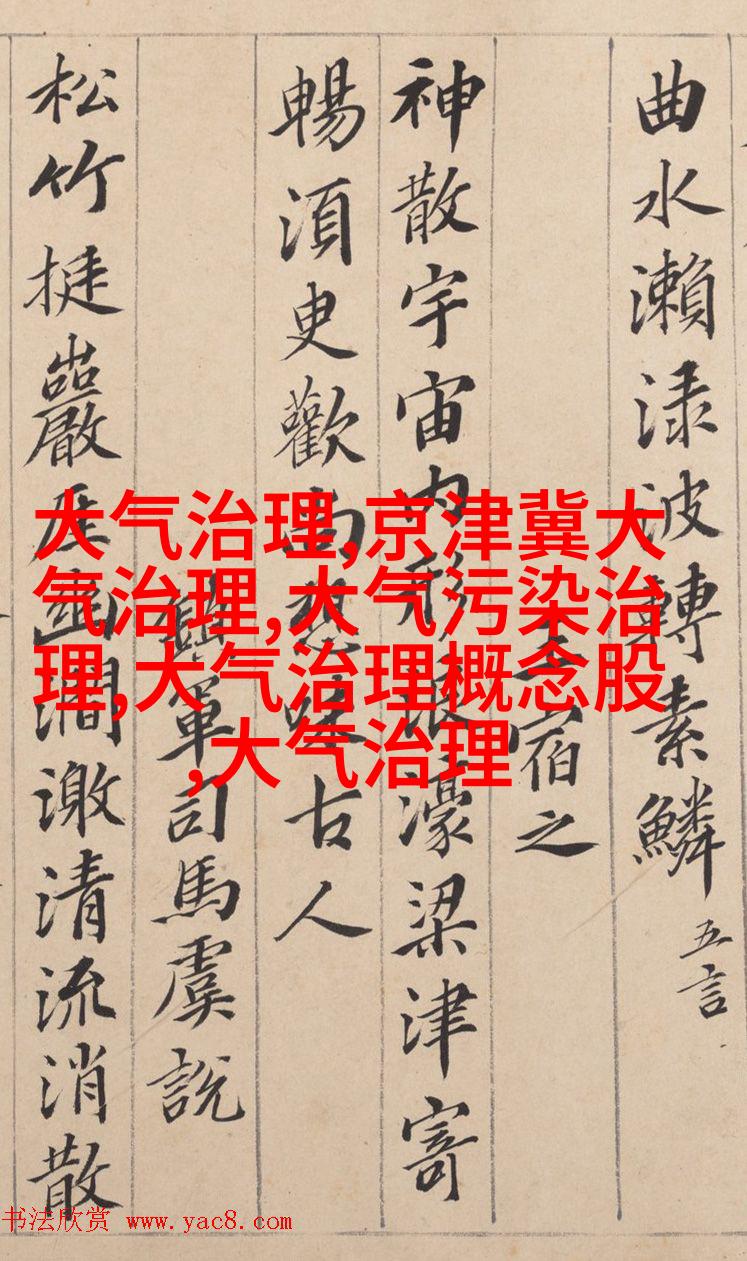 曲水瀨淥波轉素鱗 五言
王宿之
神散宇宙內形浪濠梁津寄
暢須臾歡尚想味古人
鎮軍司馬虞說
松竹挺巖崖幽澗激清流消散
大气治理,京津冀大
气治理,大气污染治
理,大气治理概念股
,大气治理
书法欣赏 www.yac8.com